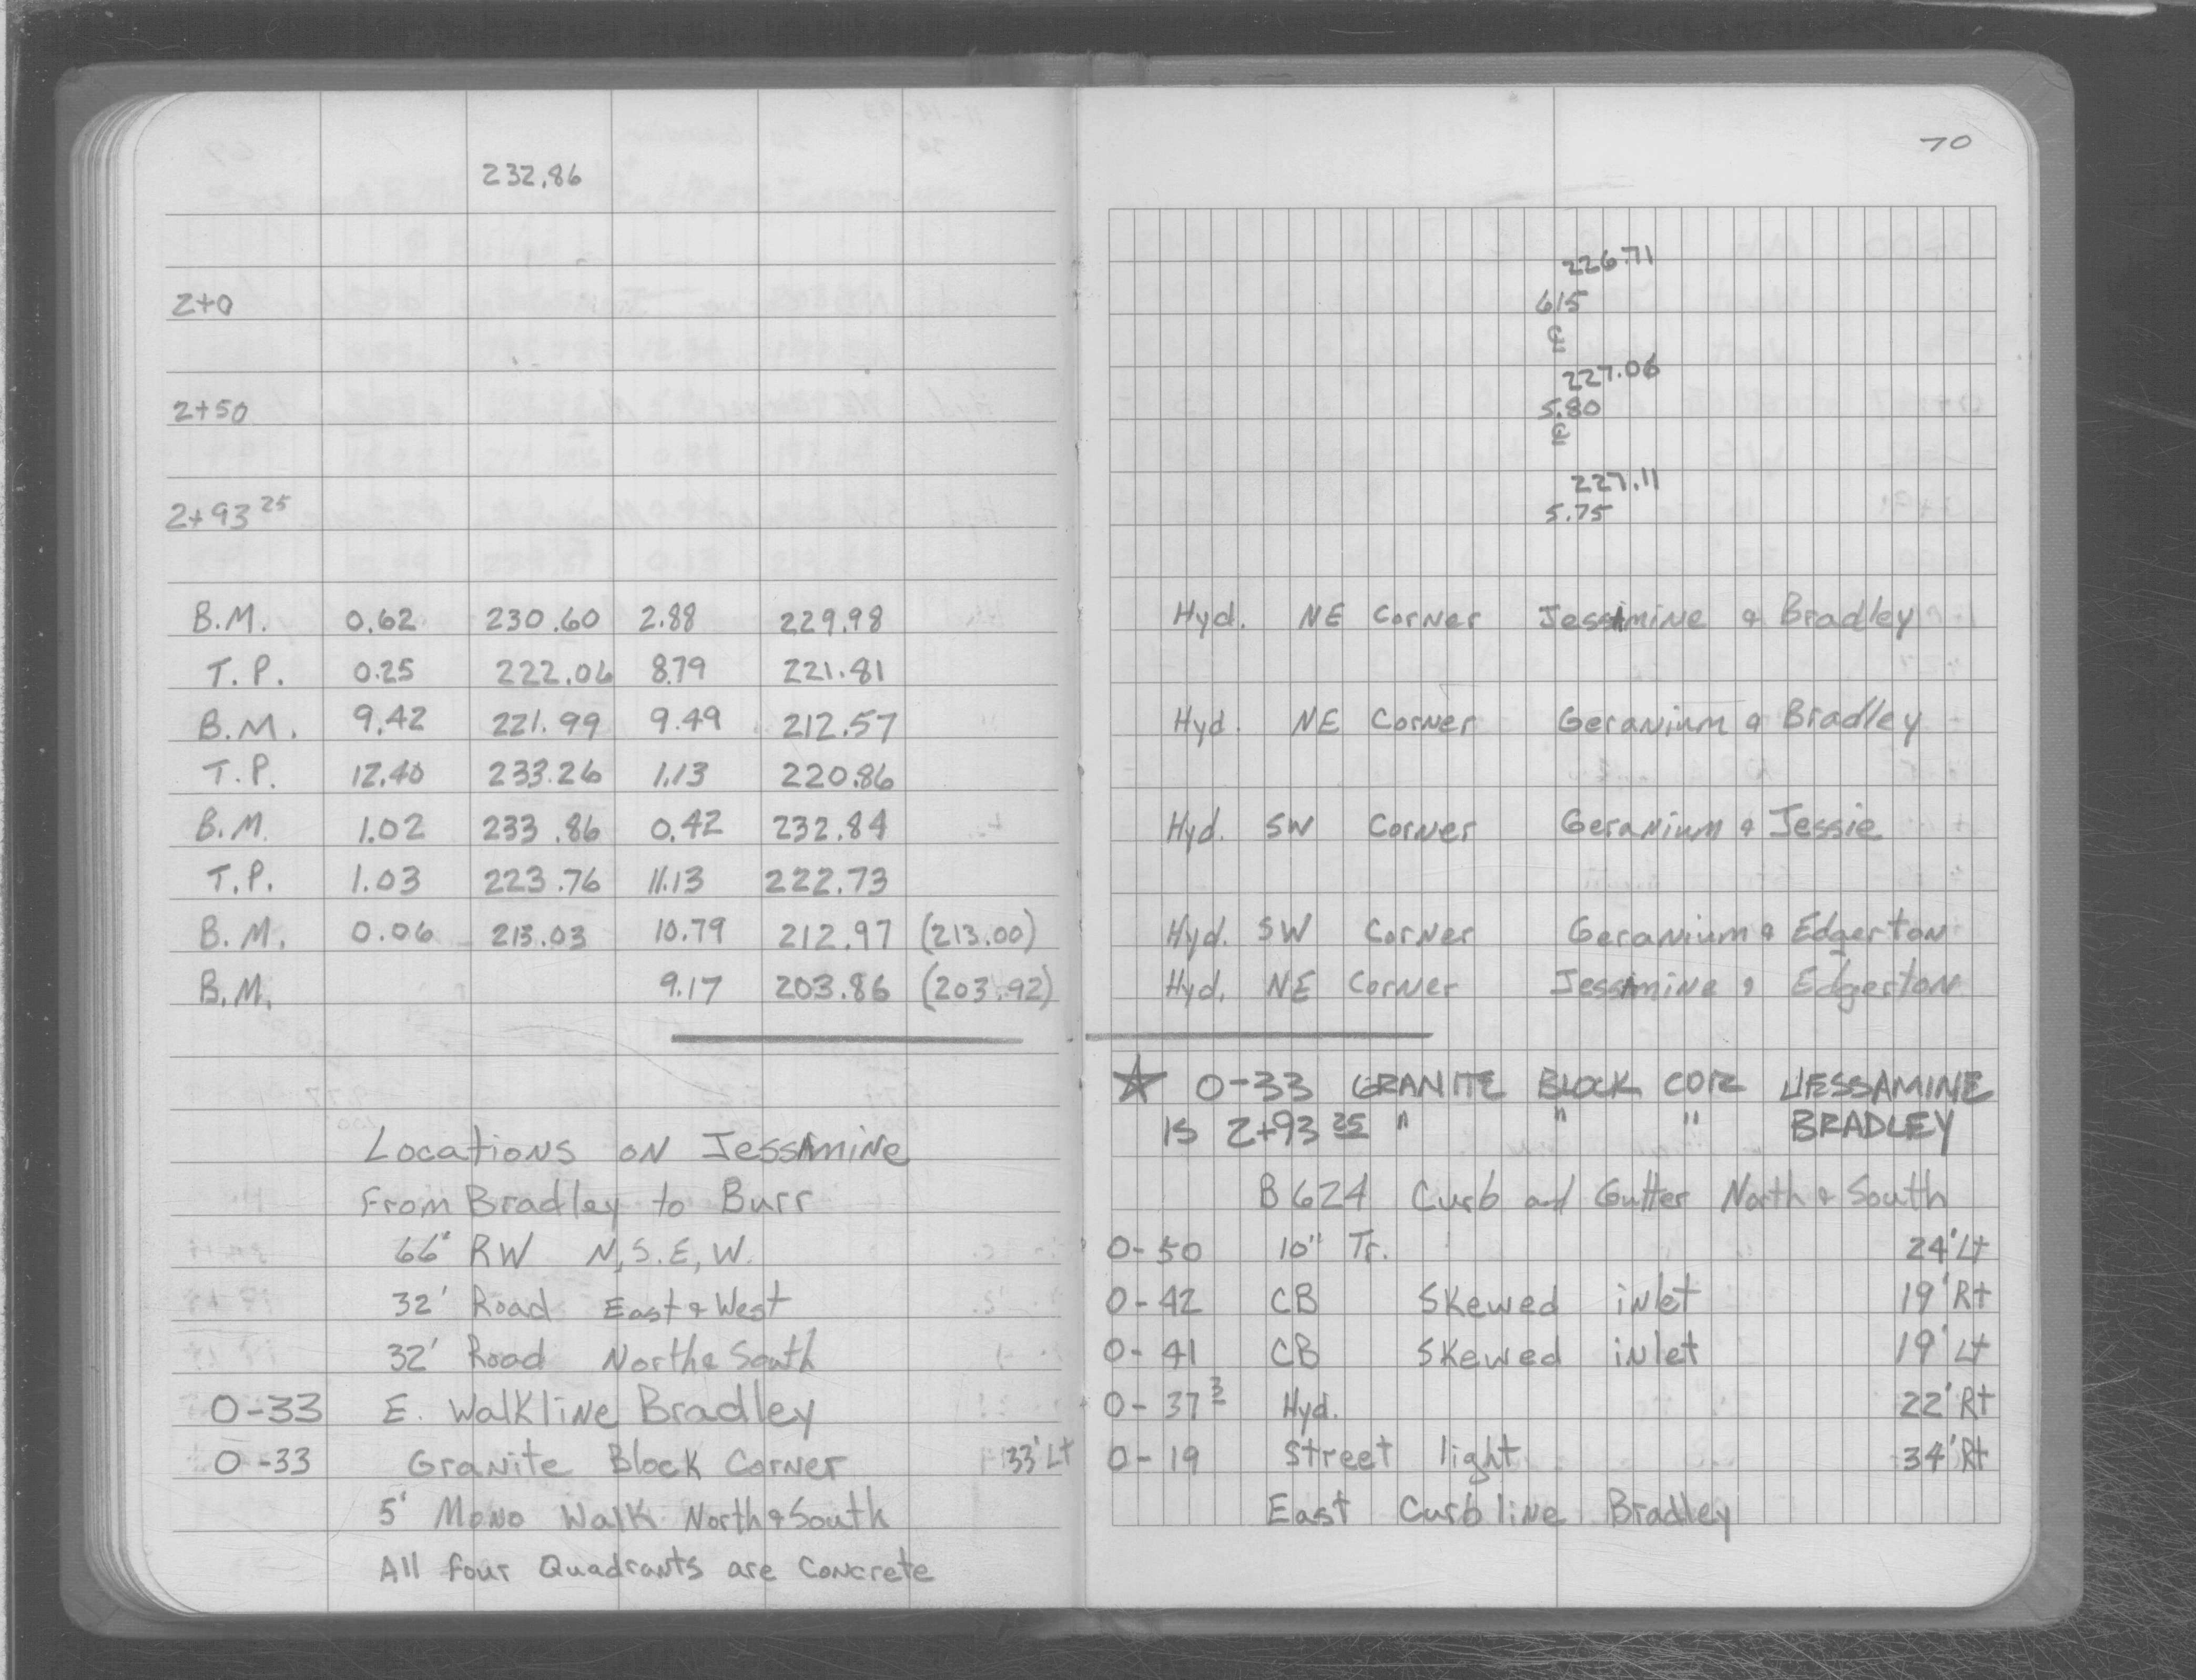 232.86
2+0
2+50
2+93 25
B.M. 0.62 230.60 2.88 229.98
T.P. 0.25 222.06 8.79 221.81
B.M. 9.42 221.99 9.49 212.57
T.P. 12.40 233.26 1.13 220.86
B.M. 1.02 233.86 0.42 232.84
T.P. 1.03 223.76 11.13 222.73
B.M. 0.06 213.03 10.79 212.97 (213.00)
B.M. 9.17 203.86 (203.92)
Locations on Jessamine
From Bradley to Burr
66' RW N,S.E,W.
32' Road East & West
32' Road North & South
0-33 E. Walkline Bradley
0-33 Granite Block Corner 33' Lt
5' Mono Walk North & South
All four Quadrants are Concrete
70
226.71
6.15
℄
227.06
5.80
℄
227.11
5.75
Hyd. NE Corner Jessamine & Bradley
Hyd. NE Corner Geranium & Bradley
Hyd. SW Corner Geranium & Jessie
Hyd. SW Corner Geranium & Edgerton
Hyd. NE Corner Jessamine & Edgerton
☆ 0-33 GRANITE BLOCK COR JESSAMINE
IS 2+93 25 " " " BRADLEY
B624 Curb and Gutter North & South
0-50 10" Tr. 24' Lt
0-42 CB Skewed inlet 19' Rt
0-41 CB Skewed inlet 19' Lt
0-37 3 Hyd. 22' Rt
0-19 Street light 34' Rt
East Curb line Bradley